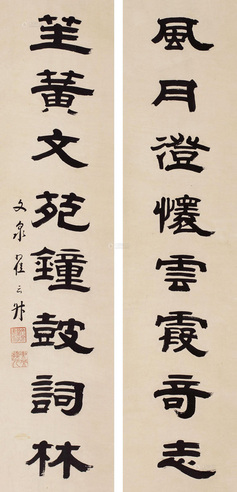 風月澄懷雲霞竒志
笙簧文苑鐘鼓詞林
文泉翟云升